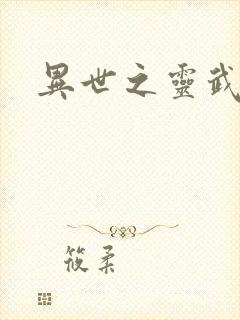 異世之靈武
筱柔